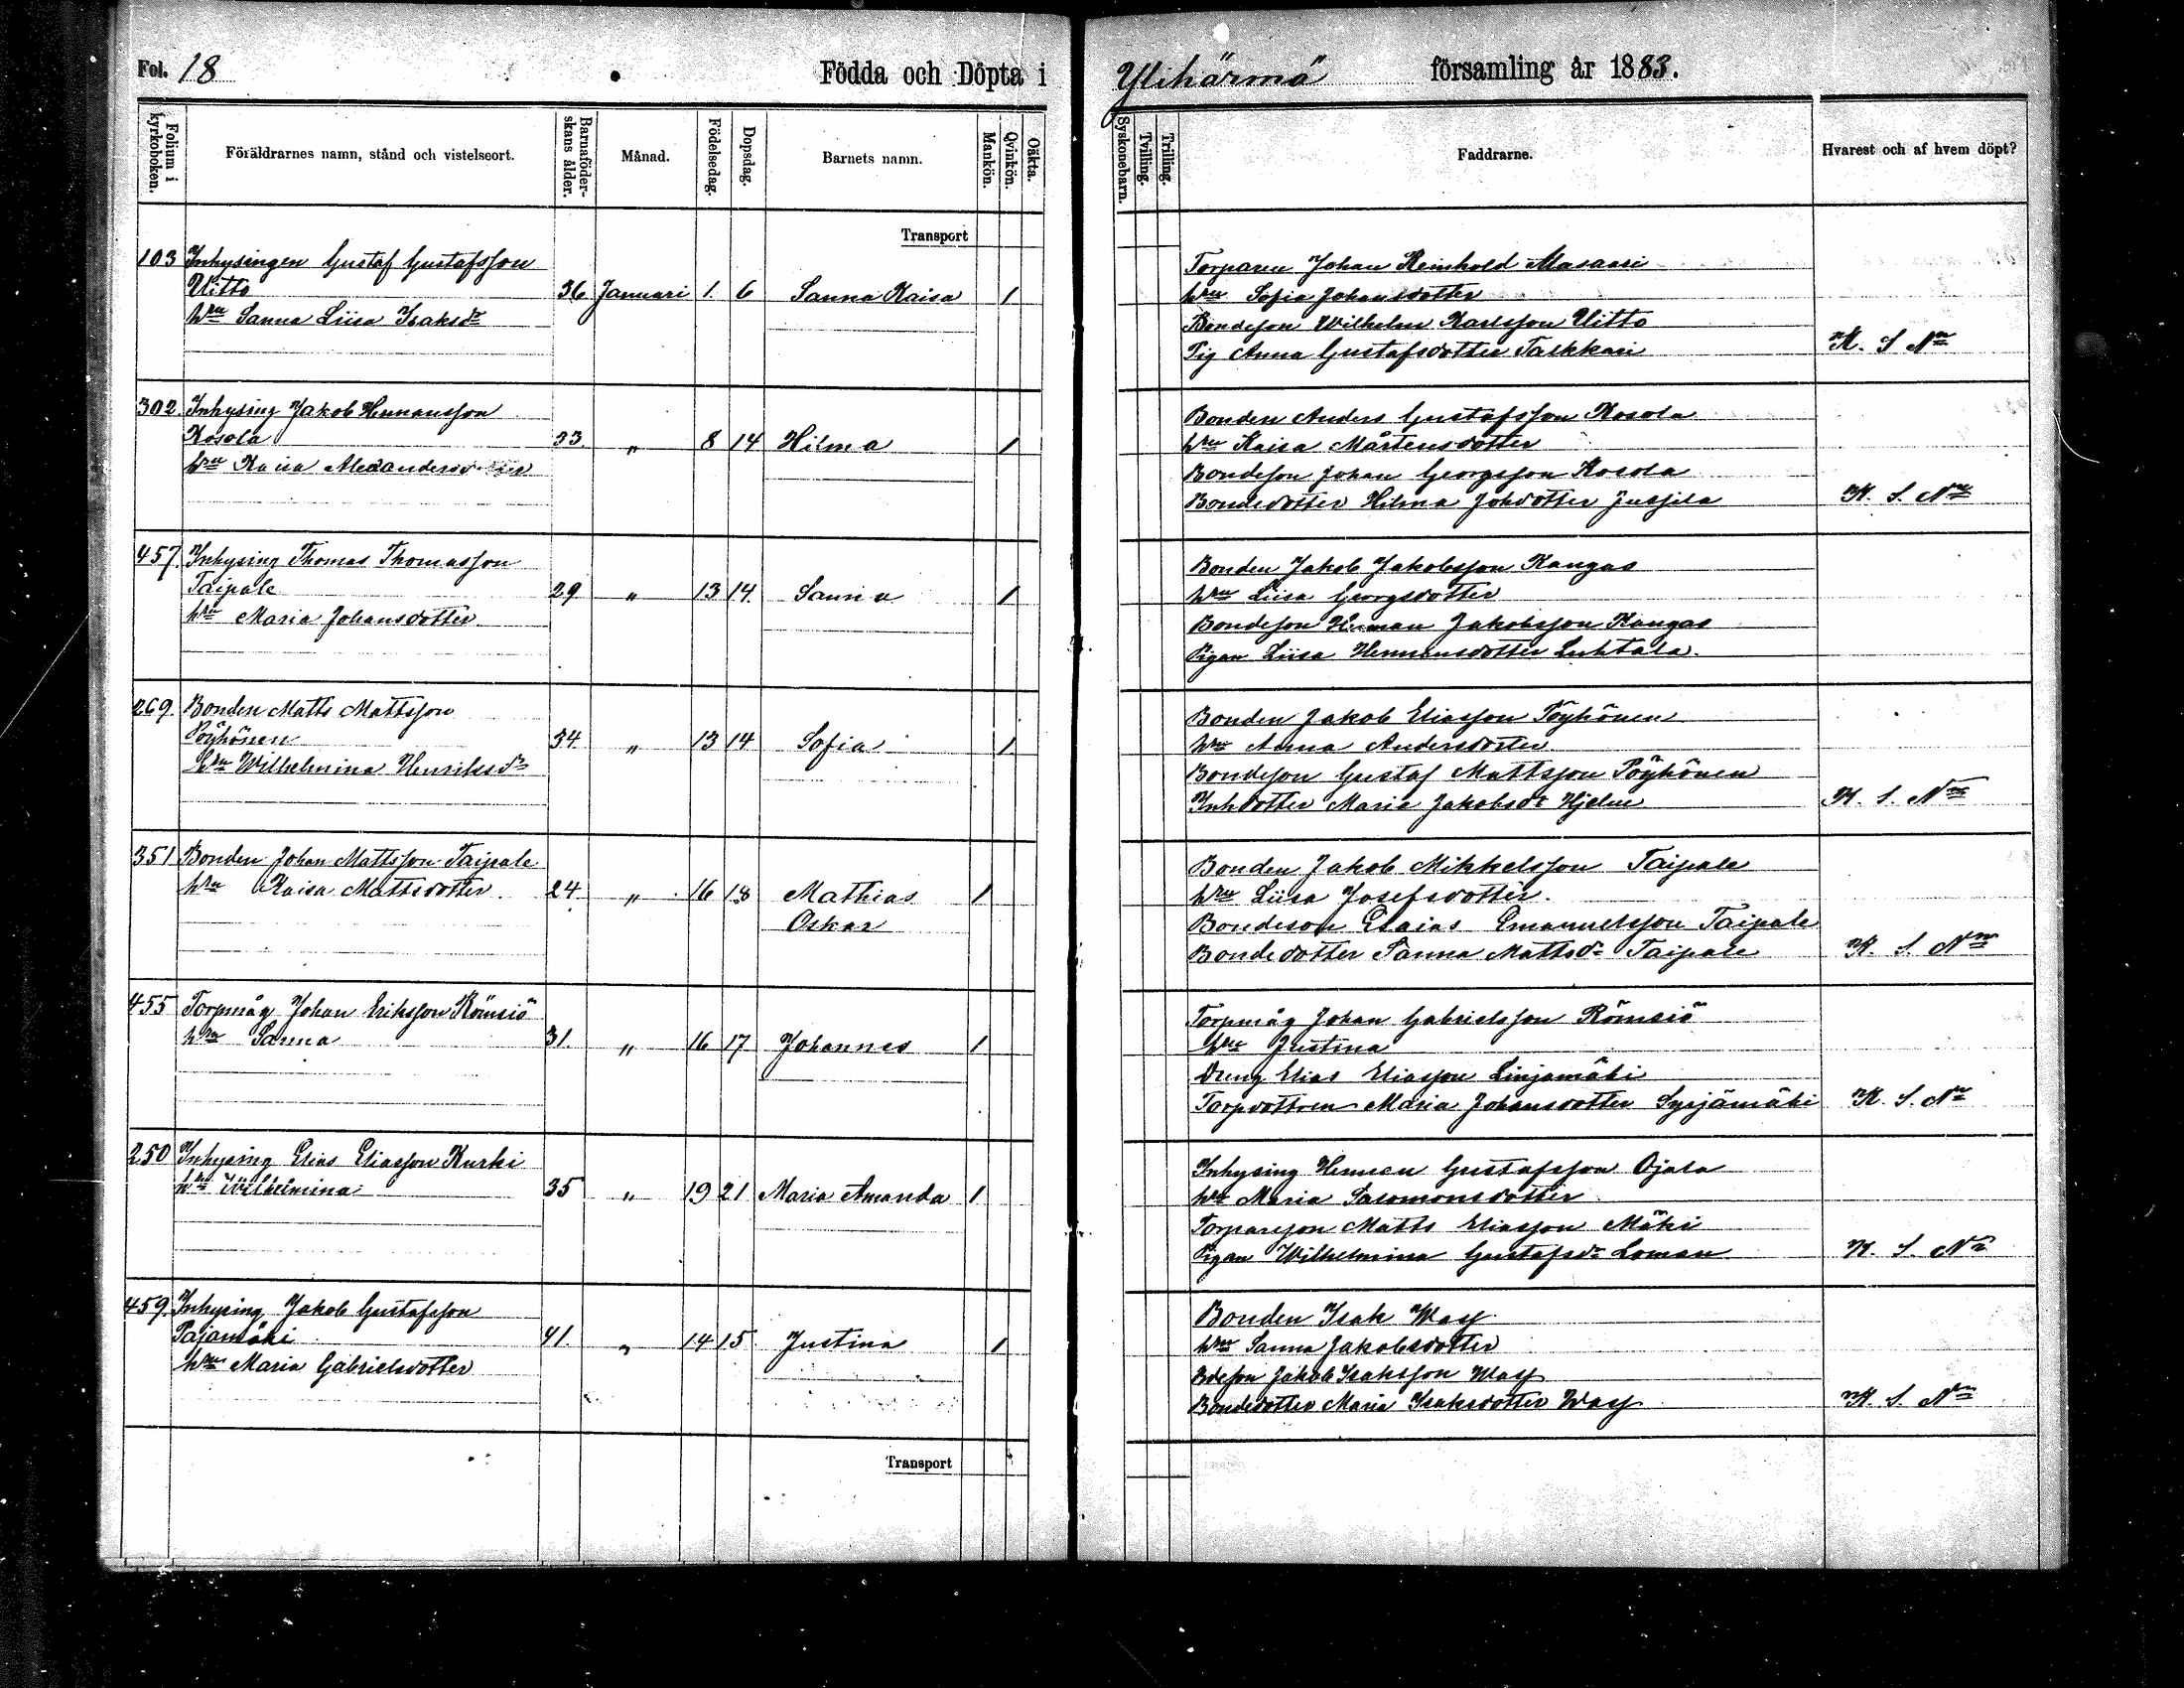 Fol. 18 Födda och Döpta i Ylihärmä församling år 1883.
Folium i kyrkoboken. Föräldrarnes namn, stånd och vistelseort. Barnaföderskans ålder. Månad. Födelsedag. Dopsdag. Barnets namn. Mankön. Qvinkön. Oäkta. Syskonebarn. Tvilling. Trilling. Faddrarne. Hvarest och af hvem döpt?
Transport
103 Inhysingen Gustaf Gustafsson
Uitto 36 Januari 1. 6 Sanna Kaisa 1
hru Sanna Liisa Isaksdr
Torparen Johan Reinhold Masaari
hru Sofia Johansdotter
Bondeson Wilhelm Karlsson Uitto
Pig Anna Gustafsdotter Talkkari K. S Nm
302. Inhysing Jakob Hermansson
Kosola 33. " 8 14 Hilma 1
hru Kaisa Alexandersdotter
Bonden Anders Gustafsson Kosola
hru Kaisa Mårtensdotter
Bondeson Johan Georgsson Kosola
Bondedotter Hilma Johdotter Jussila K. S. Nm
457. Inhysing Thomas Thomasson
Taipale 29 " 13 14. Sanna 1
hru Maria Johansdotter.
Bonden Jakob Jakobsson Kangas
hru Liisa Georgsdotter
Bondeson Herman Jakobsson Kangas
Pigan Liisa Hermansdotter Luhtala.
269. Bonden Matts Mattsson
Pöyhönen 34. " 13 14 Sofia 1.
hru Wilhelmina Henriksdr
Bonden Jakob Eliasson Pöyhönen
hru Anna Andersdotter
Bondeson Gustaf Mattsson Pöyhönen
Inhdotter Maria Jakobsdr Hjelm K. S. Nm
351 Bonden Johan Mattsson Taipale
hru Kaisa Mattsdotter. 24. " 16 18 Mathias 1
Oskar
Bonden Jakob Mikkelsson Taipale
hru Liisa Josefsdotter.
Bondeson Esaias Emanuelsson Taipale
Bondedotter Sanna Mattsdr Taipale K. S. Nm
455 Torpmåg Johan Eriksson Römsiö
hru Sanna 31. " 16 17 Johannes 1
Torpmåg Johan Gabrielsson Römsiö
hru Justina
Dreng Elias Eliasson Linjamäki
Torpdottren Maria Johansdotter Syrjämäki K. S. Nm
250 Inhysing Elias Eliasson Kurki
hru Wilhelmina 35 " 19 21 Maria Amanda 1
Inhysing Herman Gustafsson Ojala
hru Maria Salomonsdotter
Torpareson Matts Eliasson Mäki
Pigan Wilhelmina Gustafsdr Loman K. S. Nm
459. Inhysing Jakob Gustafsson
Pajamäki 41. " 14 15 Justina 1
hru Maria Gabrielsdotter
Bonden Isak Wasf
hru Sanna Jakobsdotter
Bdeson Jakob Isaksson Wasf
Bondedotter Maria Isaksdotter Wasf K. S. Nm
Transport